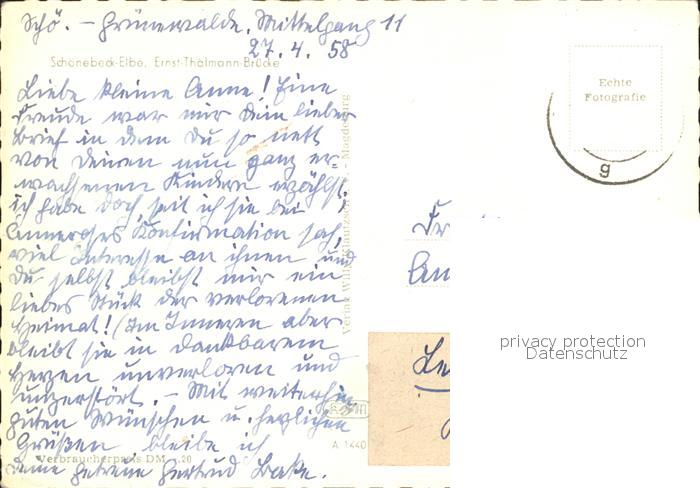 Schö. – Grünewalde, Mittelgang 11
27. 4. 58
Schönebeck-Elbe, Ernst-Thälmann-Brücke
Liebe kleine Anne! Eine
Freude war mir dein lieber
Brief in dem du so nett
von deinen nun ganz er-
wachsenen Kindern erzählst.
ich habe doch, seit ich sie bei
Anneroses Konfirmation sah,
viel Interesse an ihnen und
du selbst bleibst mir ein
liebes Stück der verlorenen
Heimat! (Im Inneren aber
bleibt sie in dankbarem
Herzen unverloren und
unzerstört. – Mit weiterhin
guten Wünschen u. herzlichen
Grüßen bleibe ich
deine getreue Gertrud
Verbraucherpreis DM -.20
A 1440
Magdeburg
Echte
Fotografie
g
Fr
An
Le
privacy protection
Datenschutz